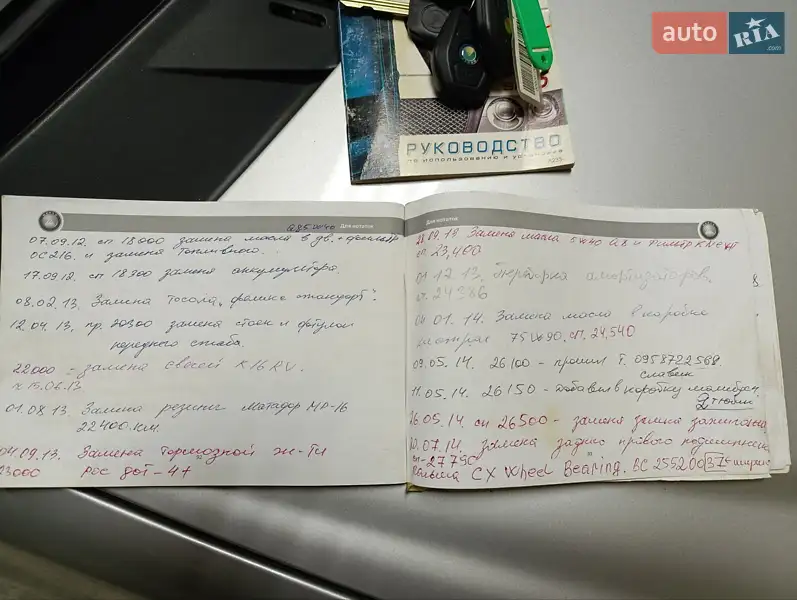 auto RIA .com
РУКОВОДСТВО
по использованию и установке
Для заметок
07.09.12. сп 18000 замена масла в дв. + фильтр
ОС216. и замена топливного.
17.09.12. сп 18300 замена аккумулятора.
08.02.13. Замина Тосола „феликс стандарт".
12.04.13, пр. 20300 замена стоек и
переднего стаба.
22000 - замена свечей K16RU.
15.06.13
01.08.13. Замина резины Матадор МР-16
22400 км.
04.09.13. Замина тормозной ж-ти
23000 РОС ДОТ-4+
Для заметок
.09.13 Замена масла 5W40 и Фильтр KNECHT
сп. 23,400
01.12.13. амортизаторов.
24986
04.01.14. Замина масла в коробке
75W90, сп, 24,540
09.05.14. 26100 - т. 0958722568
славик
11.05.14. 26150 - добавил в коробку
26.05.14 сп 26500 - замена замка зажигания
10.07.14. замена задне правого подшипника
-27750
CX Wheel Bearing.
37